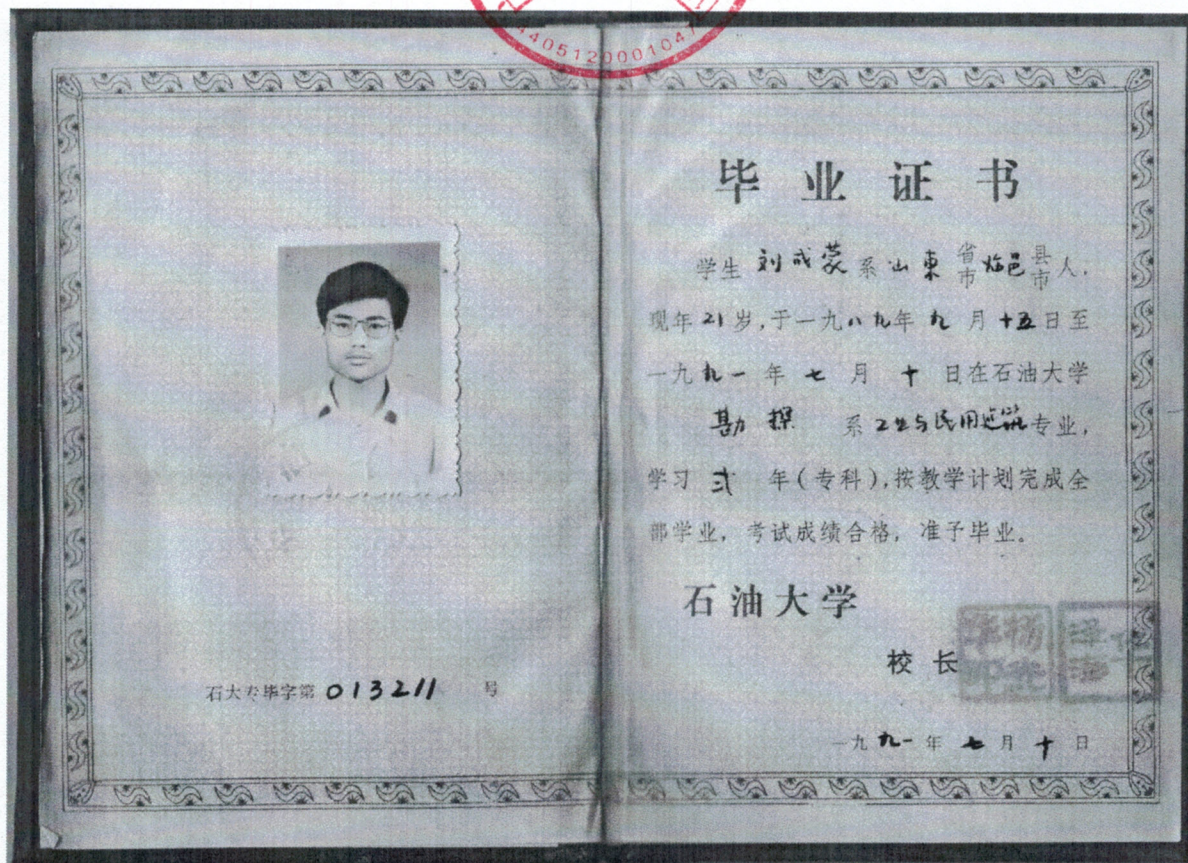 4405120001047
毕业证书
学生 刘成蒙 系 山東 省市 临邑 县市 人,
现年 21 岁,于一九八九年 九 月 十五 日至
一九九一 年 七 月 十 日在石油大学
勘探 系 工业与民用建筑 专业,
学习 弍 年(专科),按教学计划完成全
部学业,考试成绩合格,准予毕业。
石油大学
校长
一九九一 年 七 月 十 日
石大专毕字第 013211 号